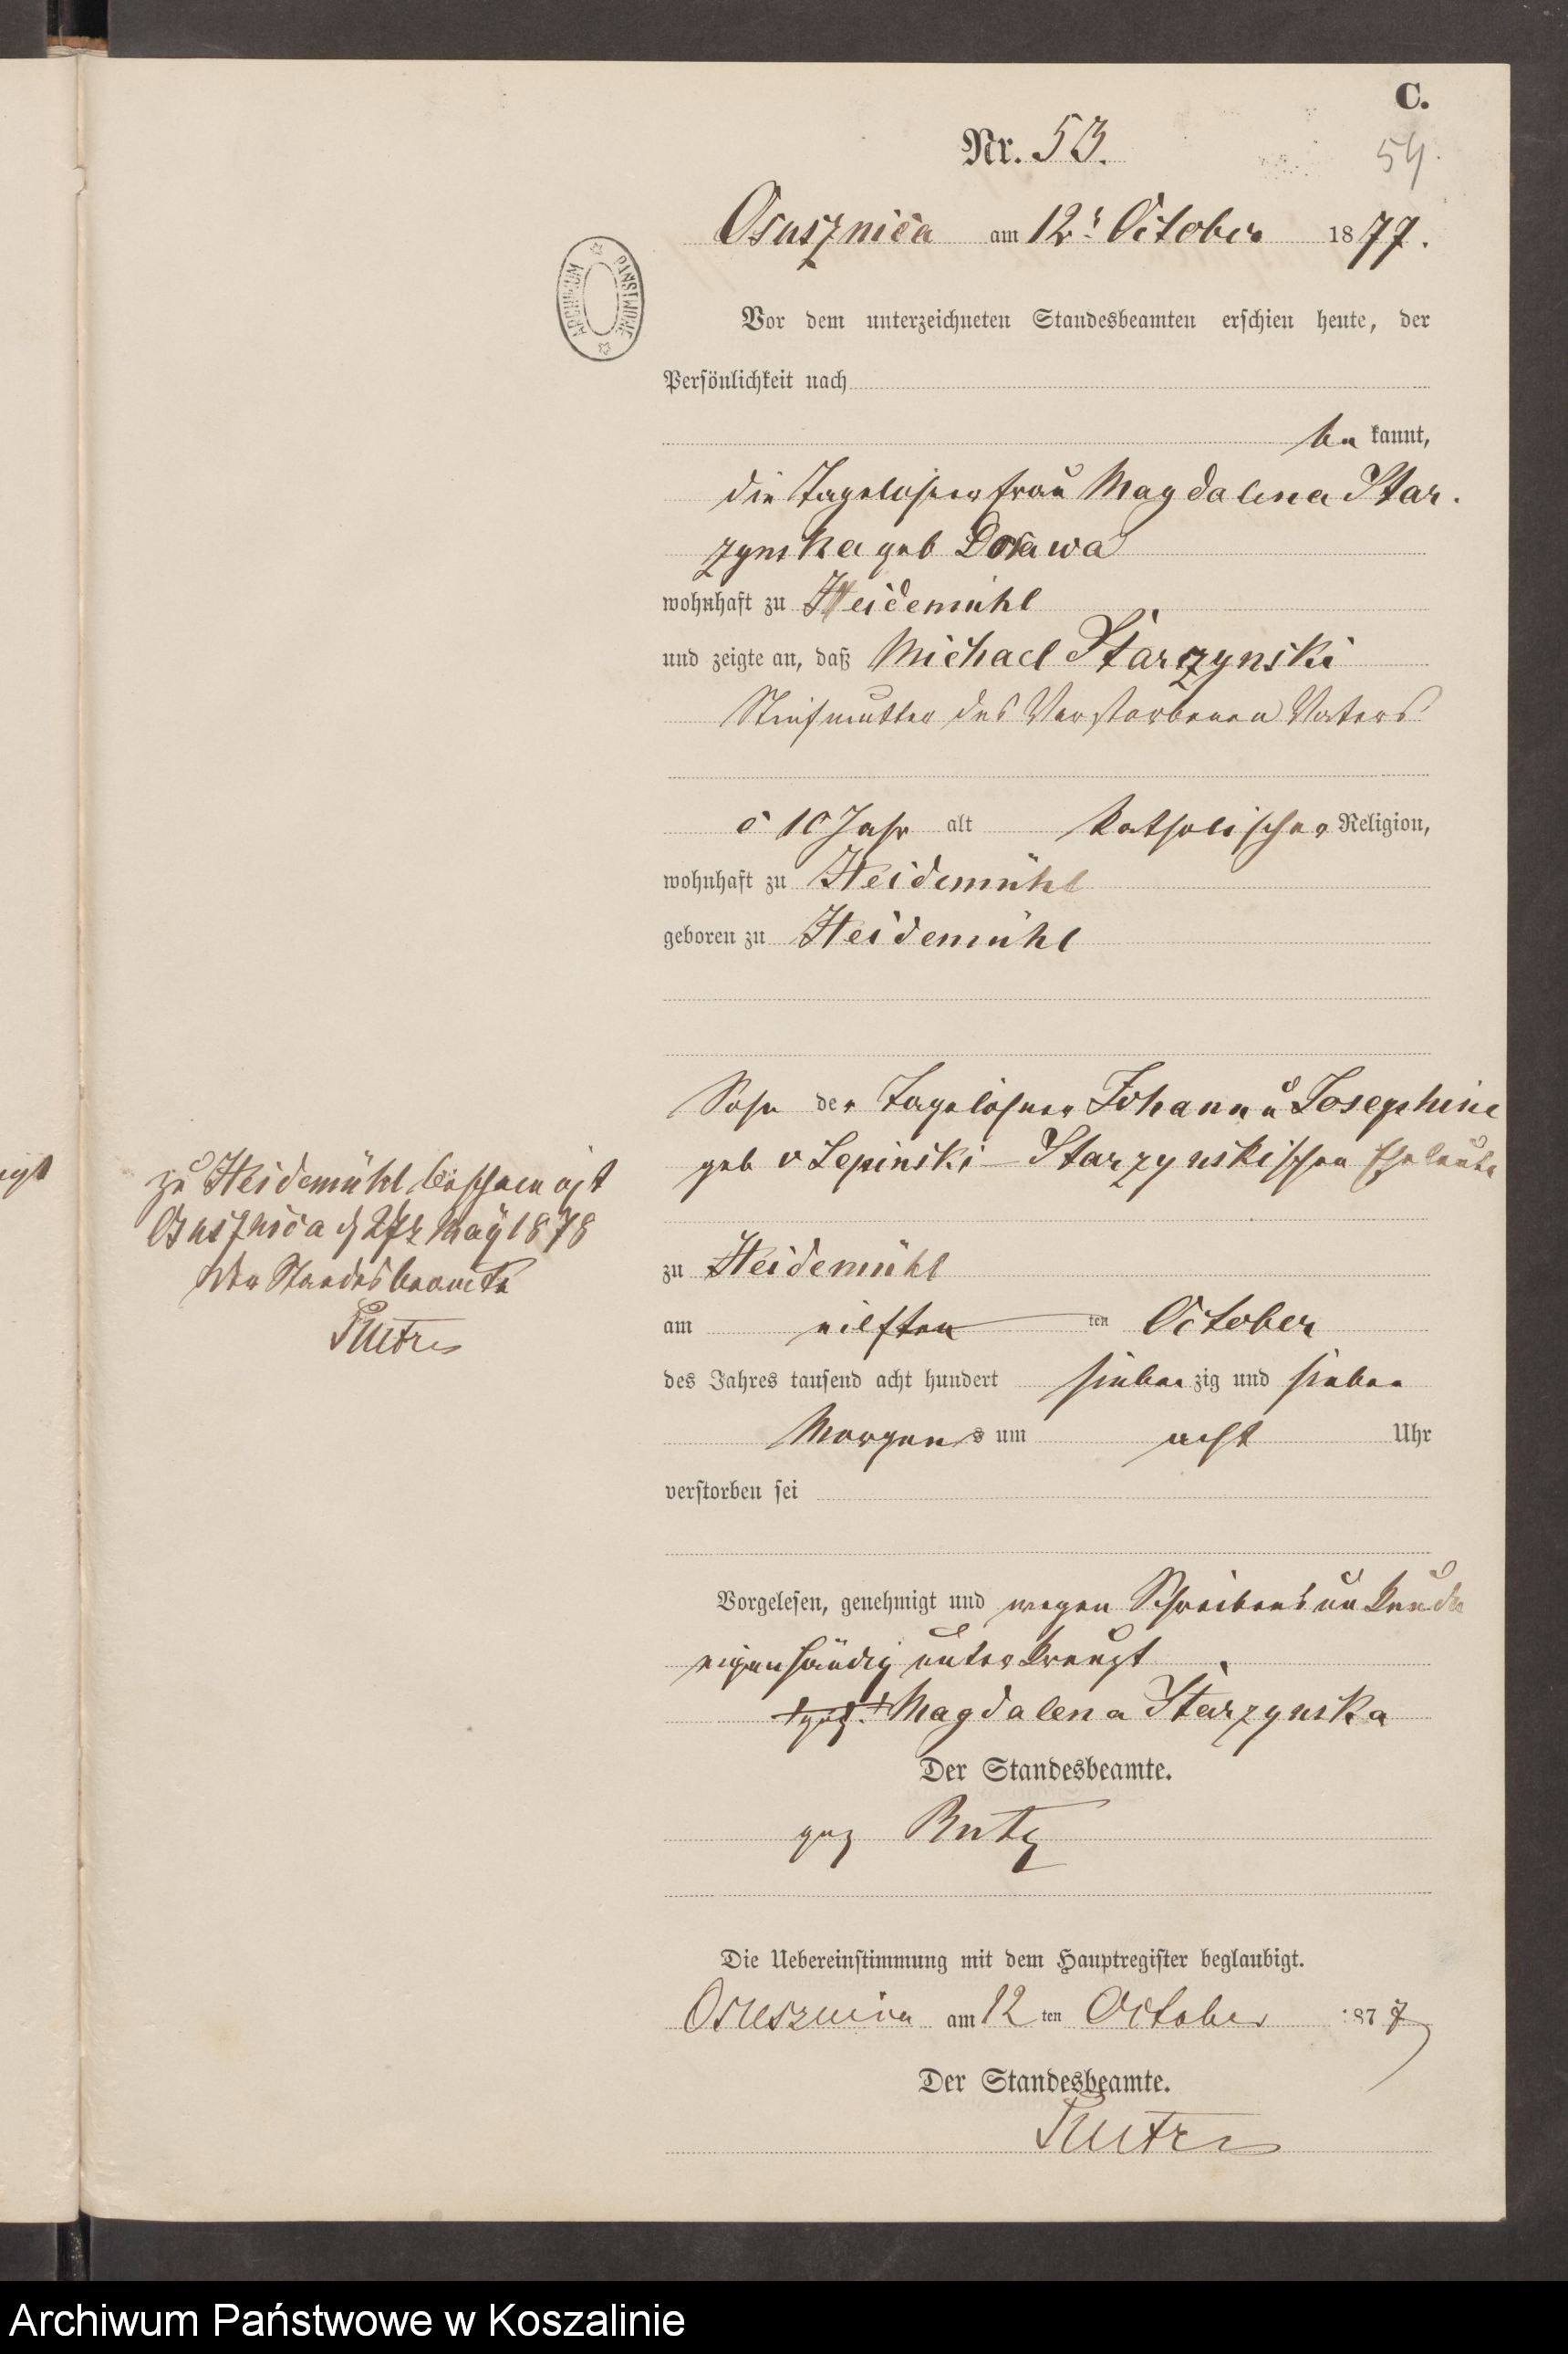 C.
Nr. 53.
54.
Osusznica am 12t October 1877.
ARCHIWUM PAŃSTWOWE
Vor dem unterzeichneten Standesbeamten erschien heute, der
Persönlichkeit nach
be kannt,
die Tagelöhnerfrau Magdalena Star-
zynska geb
wohnhaft zu Heidemühl
und zeigte an, daß Michael Starzynski
Stiefmutter des Verstorbenen Vaters
10 Jahr alt katholischer Religion,
wohnhaft zu Heidemühl
geboren zu Heidemühl
Sohn der Tagelöhner Johann u Josephine
geb v Lepinski-Starzynskischen Eheleute
zu Heidemühl
am eilften ten October
des Jahres tausend acht hundert siebenzig und sieben
Morgens um acht Uhr
verstorben sei
zu Heidemühl
Osusznica d 27t May 1878
Der Standesbeamte
Vorgelesen, genehmigt und wegen Schreibensunkunde
eigenhändig unterkreuzt
Magdalena Starzynska
Der Standesbeamte.
gez
Die Uebereinstimmung mit dem Hauptregister beglaubigt.
Osusznica am 12ten October 1877
Der Standesbeamte.
Archiwum Państwowe w Koszalinie